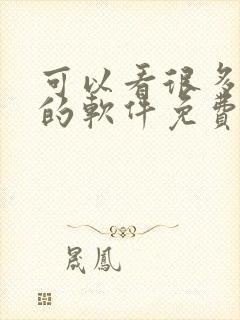 可以看很多
的軟件免費
晟鳳